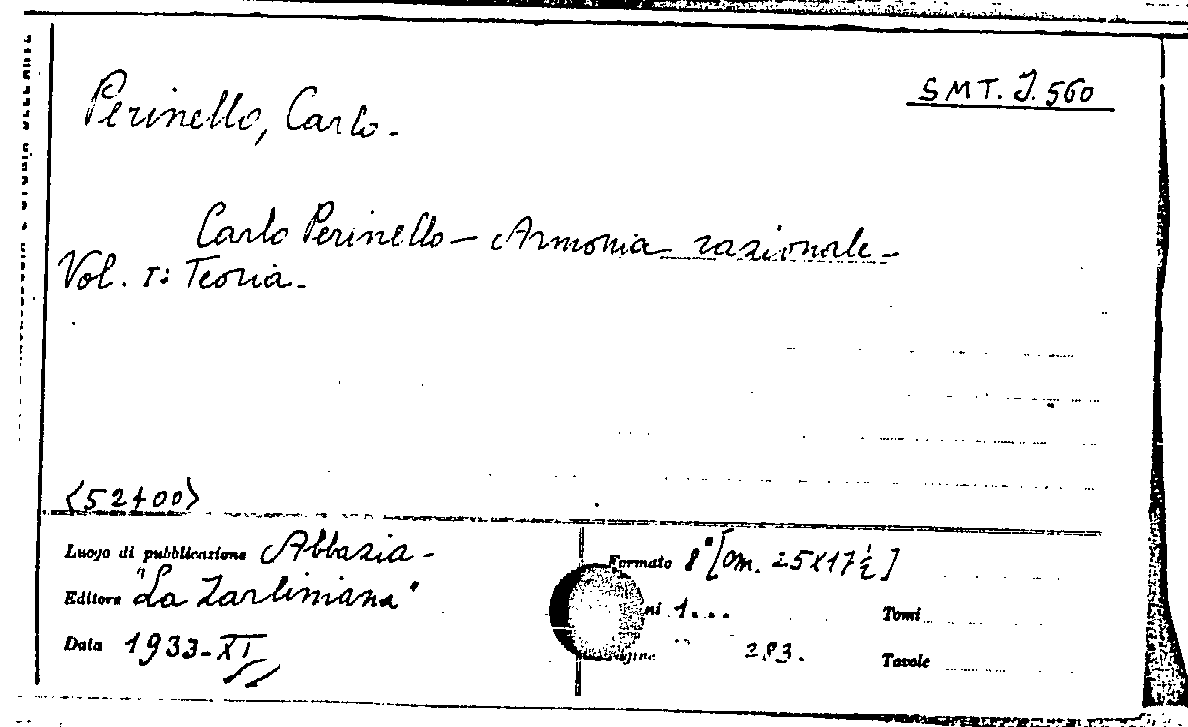 Perinello, Carlo -
SMT. J. 560
Carlo Perinello - Armonia razionale -
Vol. I: Teoria -
<52400>
Luogo di pubblicazione Abbazia -
Editore "La Zarliniana"
Data 1933-XI
Formato 8° [cm. 25x17½]
1...
Tomi
283.
Tavole